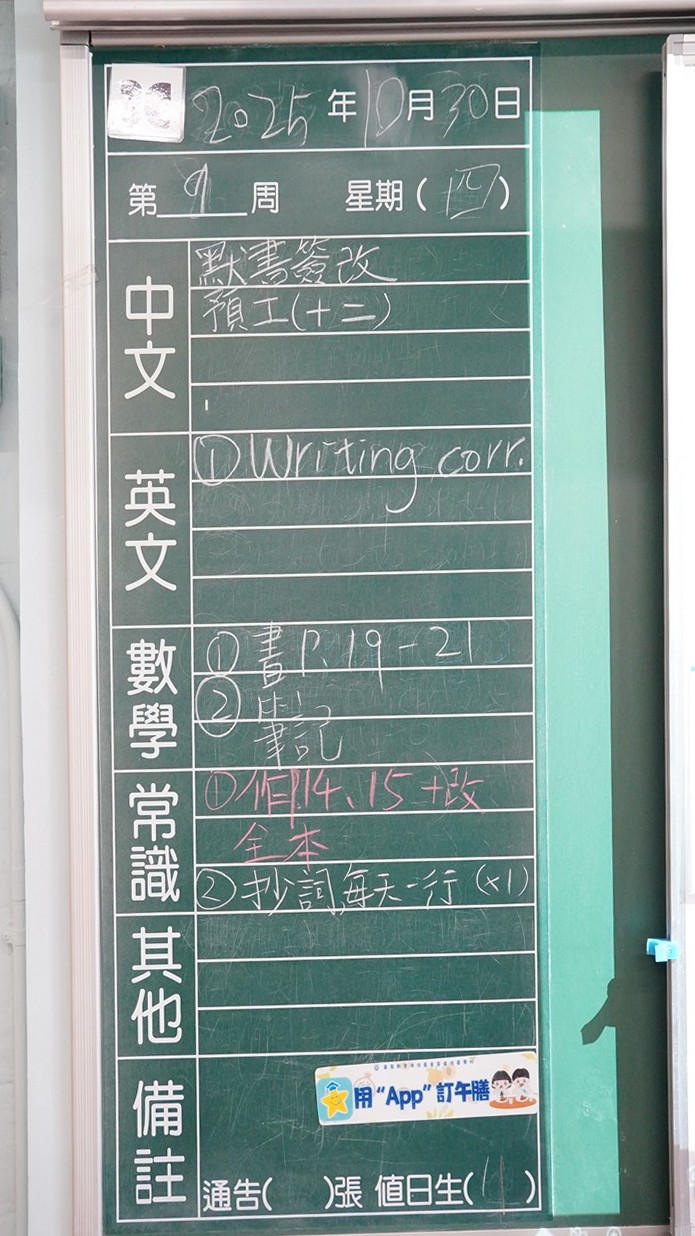 2025年10月30日
第 9 周 星期(四)
中文
默書簽改
預工(十二)
英文
① Writing corr.
數學
① 書P.19-21
②
筆記
常識
① 作P.14、15+改
全本
② 抄詞,每天一行 (x1)
其他
備註
用“App”訂午膳
通告( )張 值日生( )